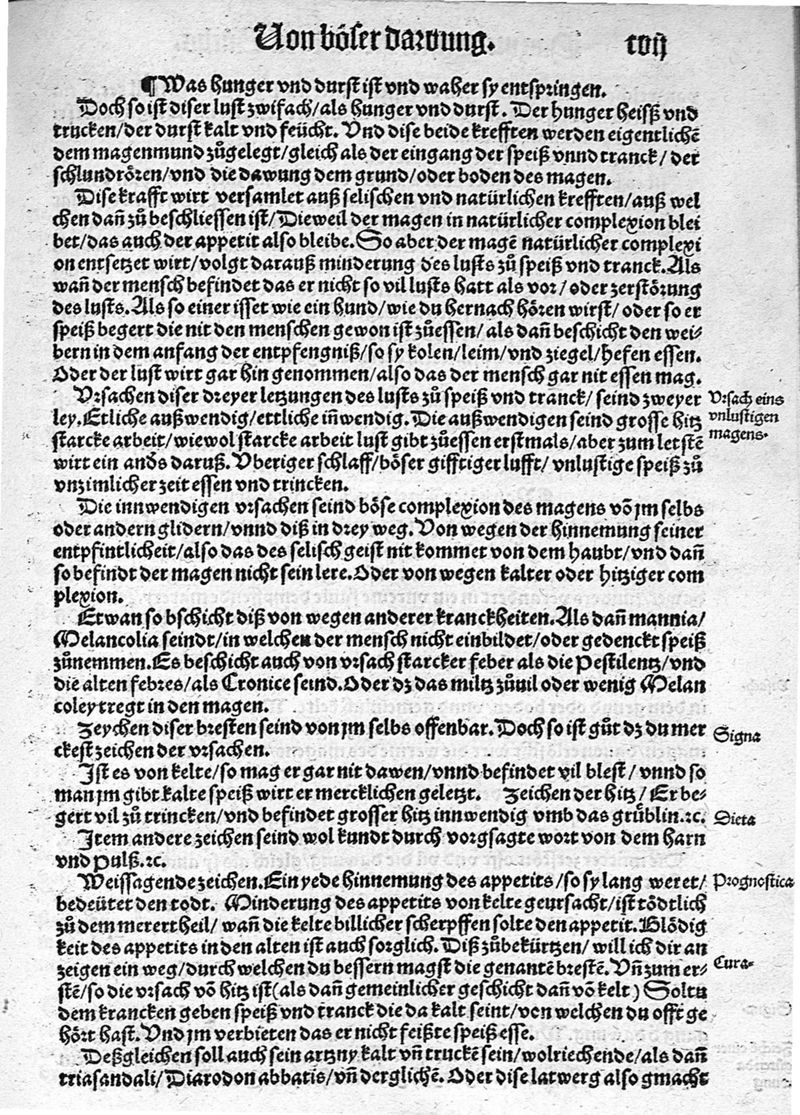 Von böser dawung. cvij
¶ Was hunger vnd durst ist vnd waher sy entspringen.
Doch so ist diser lust zwifach/als hunger vnd durst. Der hunger heisß vnd
trucken/der durst kalt vnd feücht. Vnd dise beide krefften werden eigentlichē
dem magenmund zůgelegt/gleich als der eingang der speiß vnnd tranck/ der
schlundrören/vnd die dawung dem grund/oder boden des magen.
Dise krafft wirt versamlet auß selischen vnd natürlichen krefften/auß wel
chen dañ zů beschliessen ist/Dieweil der magen in natürlicher complexion blei
bet/das auch der appetit also bleibe. So aber der magē natürlicher complexi
on entsetzet wirt/volgt darauß minderung des lusts zů speiß vnd tranck. Als
wañ der mensch befindet das er nicht so vil lusts hatt als vor/oder zerstörung
des lusts. Als so einer isset wie ein hund/wie du hernach hören wirst/ oder so er
speiß begert die nit den menschen gewon ist zůessen/ als dañ beschicht den wei-
bern in dem anfang der entpfengniß/so sy kolen/leim/vnd ziegel/hefen essen.
Oder der lust wirt gar hin genommen/also das der mensch gar nit essen mag.
Vrsachen diser dreyer letzungen des lusts zů speiß vnd tranck/ seind zweyer
Vrsach eins
ley. Etliche außwendig/ettliche iñwendig. Die außwendigen seind grosse hitz
vnlustigen
starcke arbeit/wiewol starcke arbeit lust gibt zůessen erstmals/aber zum letstē
magens.
wirt ein anďs daruß. Vberiger schlaff/böser gifftiger lufft/ vnlustige speiß zů
vnzimlicher zeit essen vnd trincken.
Die innwendigen vrsachen seind böse complexion des magens vō jm selbs
oder andern glidern/vnnd diß in drey weg. Von wegen der hinnemung seiner
entpfintlicheit/also das des selisch geist nit kommet von dem haubt/vnd dañ
so befindt der magen nicht sein lere. Oder von wegen kalter oder hitziger com
plexion.
Etwan so bschicht diß von wegen anderer kranckheiten. Als dañ mannia/
Melancolia seindt/in welchen der mensch nicht einbildet/oder gedenckt speiß
zůnemmen. Es beschicht auch von vrsach starcker feber als die Pestilentz/vnd
die alten febres/als Cronice seind. Oder dz das miltz zůuil oder wenig Melan
coley tregt in den magen.
Zeychen diser bresten seind von jm selbs offenbar. Doch so ist gůt dz du mer
Signa
ckest zeichen der vrsachen.
Ist es von kelte/so mag er gar nit dawen/vnnd befindet vil blest/ vnnd so
man jm gibt kalte speiß wirt er mercklichen geletzt. Zeichen der hitz/ Er be-
gert vil zů trincken/vnd befindet grosser hitz innwendig vmb das grüblin.ꝛc.
Dieta
Item andere zeichen seind wol kundt durch vorgsagte wort von dem harn
vnd pulß.ꝛc.
Weissagende zeichen. Ein yede hinnemung des appetits/so sy lang weret/
Prognostica
bedeütet den todt. Minderung des appetits von kelte geursacht/ist tödtlich
zů dem merertheil/ wañ die kelte billicher scherpffen solte den appetit. Blödig
keit des appetits in den alten ist auch sorglich. Diß zůbekürtzen/ will ich dir an
zeigen ein weg/durch welchen du bessern magst die genantē brestē. Vñ zum er-
Cura.
stē/so die vrsach vō hitz ist (als dañ gemeinlicher geschicht dañ vō kelt) Soltu
dem krancken geben speiß vnd tranck die da kalt seint/von welchen du offt ge
hört hast. Vnd jm verbieten das er nicht feißte speiß esse.
Deßgleichen soll auch sein artzny kalt vñ truckē sein/wolriechende/als dañ
triasandali/Diarodon abbatis/vñ derglichē. Oder dise latwerg also gmacht